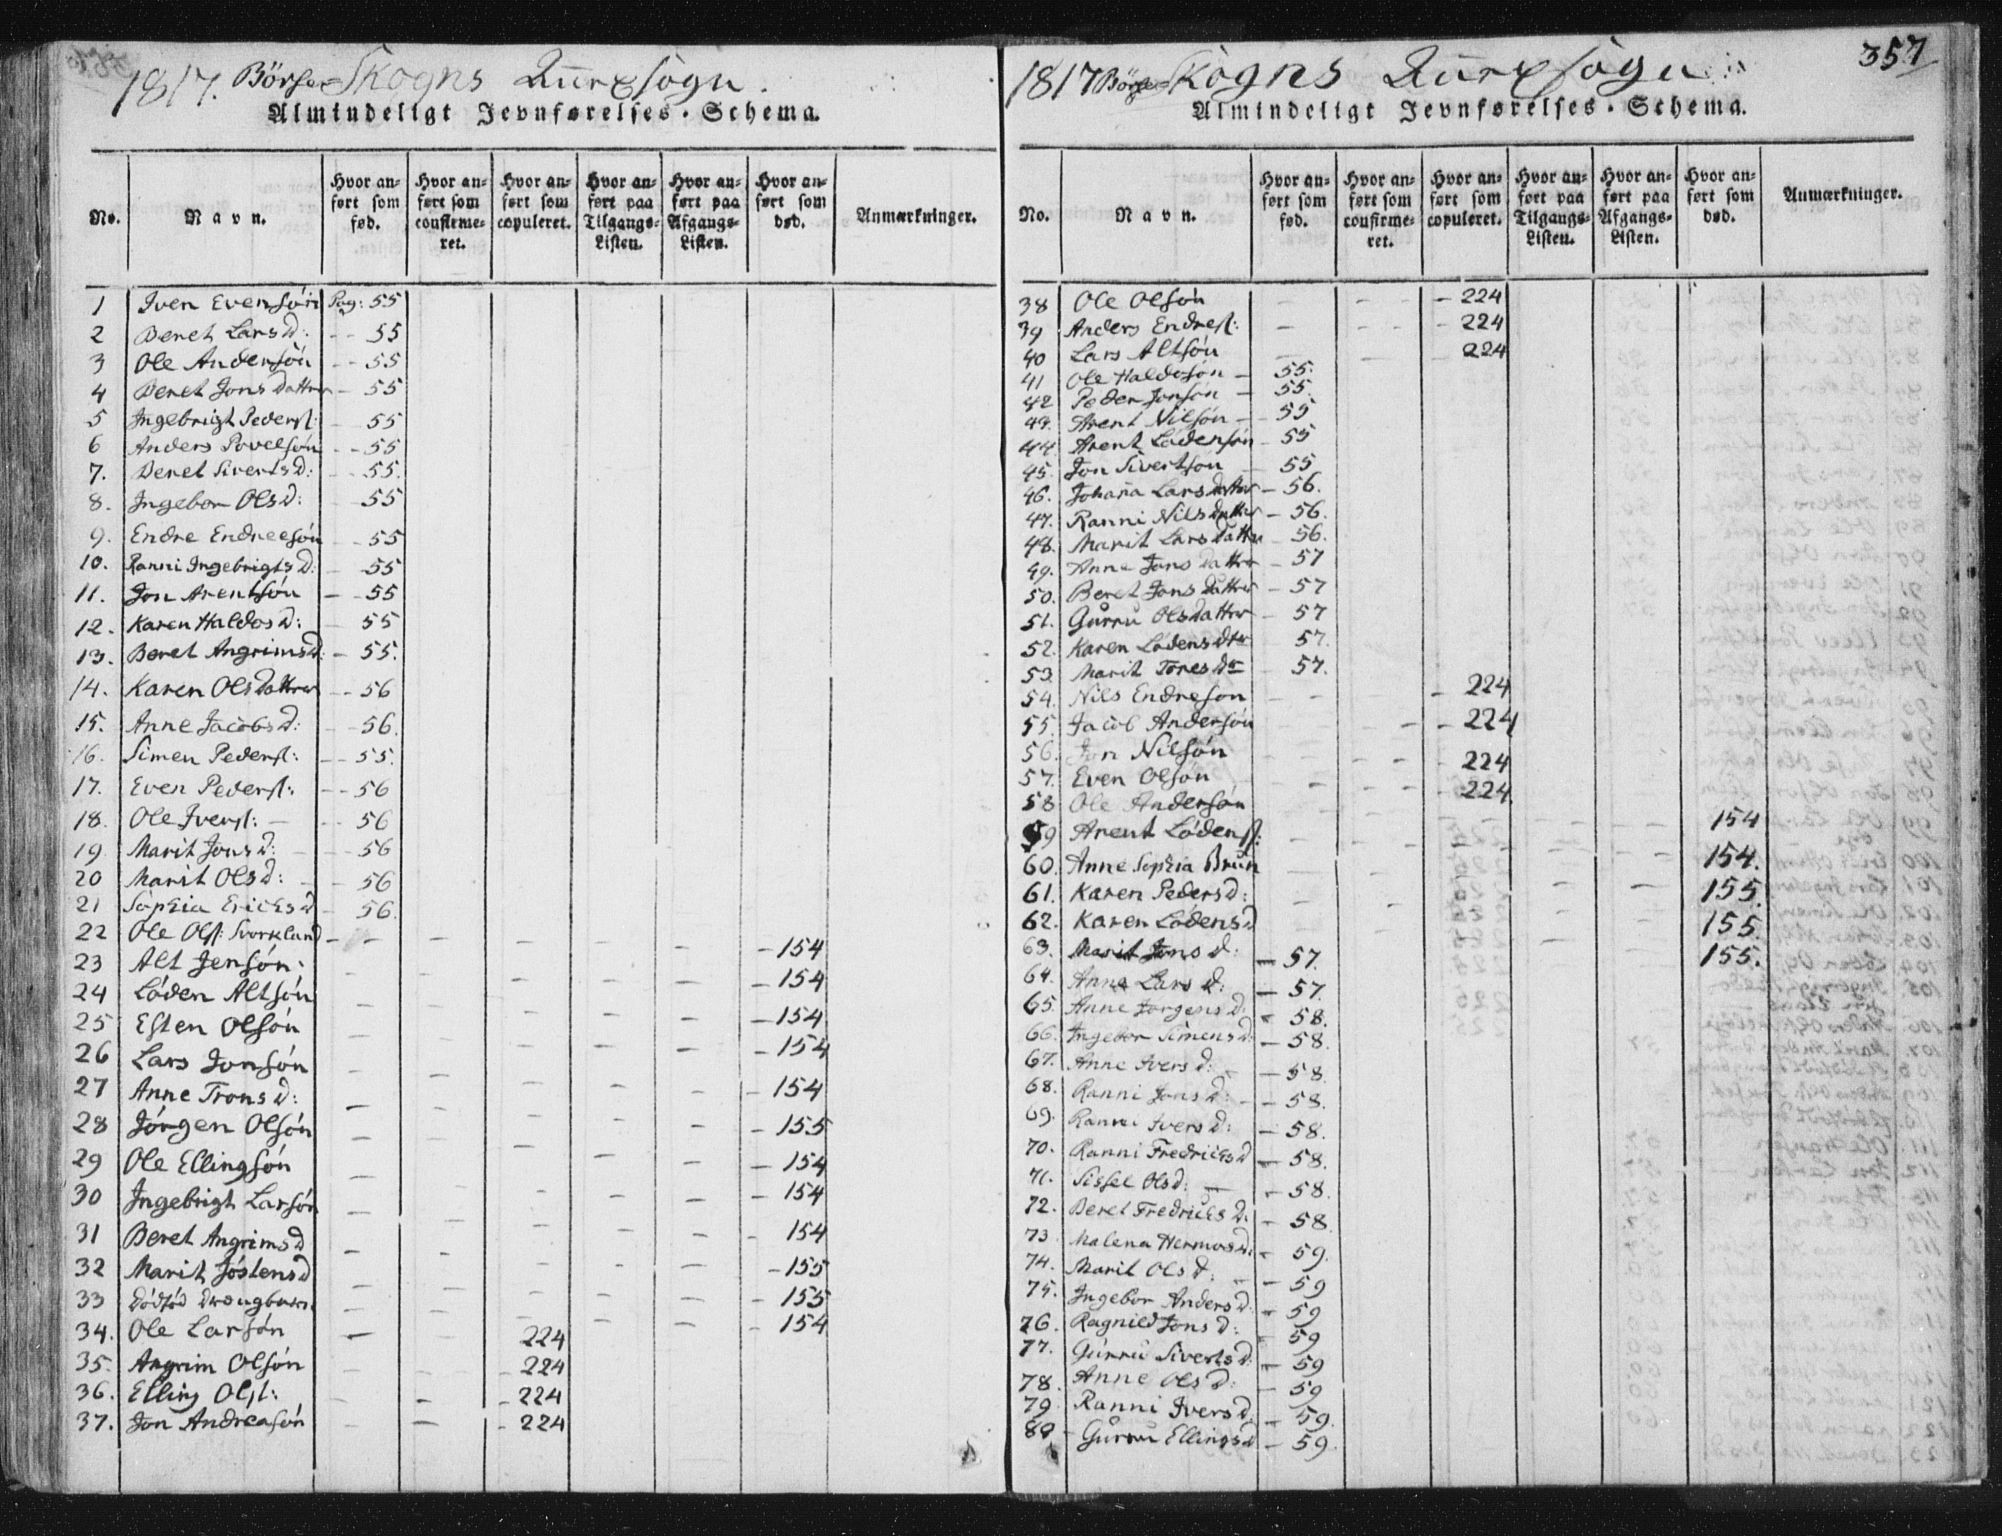 1817. Börse=Skogns Annexsogn.
Almindeligt Jevnførelses-Schema.
No. Navn. Hvor anført som fød. Hvor anført som confirmeret. Hvor anført som copuleret. Hvor anført paa Tilgangs-Listen. Hvor anført paa Afgangs-Listen. Hvor anført som død. Anmærkninger.
1 Iven Evensön Pag: 55
2 Beret Larsd: - - 55
3 Ole Andersön - - 55
4 Beret Jons Datter - 55
5 Ingebrigt Peders: - 55
6 Anders Povelsön - - 55
7. Beret Sivertsd: - - 55.
8. Ingebor Olsd: - 55
9. Endre Endresön - - 55
10. Ranni Ingebrigtsd: - 55
11. Jon Arentsön - - 55
12. Karen Haldosd: - 55
13. Beret Angrimsd: - 55.
14. Karen Olsdatter - - 56
15. Anne Jacobsd: - - 56.
16. Simen Peders: - - 55.
17. Even Peders: - - 56
18. Ole Ivers: - - - 56
19 Marit Jonsd: - - 56
20 Marit Olsd: - - 56
21 Sophia Ericksd - 56.
22 Ole Ols: Svorkland - - - - - - 154
23 Alt Jensön. - - - - - 154
24 Löden Altsön - - - - - 154
25 Esten Olsön - - - - - 154
26 Lars Jonsön - - - - - 154
27 Anne Tronsd: - - - - - 155
28 Jörgen Olsön - - - - - 154
29 Ole Ellingsön - - - - - 154
30 Ingebrigt Larsön - - - - - 154
31 Beret Angrimsd - - - - - 155
32 Marit Jöstensd - - - - - 155
33 Dödföd Drengbarn - - - - - 154
34. Ole Larsön - - - 224
35. Angrim Olsön - - - 224
36. Elling Ols: - - - 224
37. Jon Andreasön - - - 224
357
1817 Börse=Skogns Annexsogn
Almindeligt Jevnførelses-Schema.
No. Navn. Hvor anført som fød. Hvor anført som confirmeret. Hvor anført som copuleret. Hvor anført paa Tilgangs-Listen. Hvor anført paa Afgangs-Listen. Hvor anført som død. Anmærkninger.
38 Ole Olsön - - - - 224
39 Anders Endres: - - - - 224
40 Lars Altsön - - 224
41 Ole Haldosön - 55.
42 Peder Jonsön - 55.
43. Arent Nilsön - 55
44 Arent Lödensön - 55
45. Jon Sivertsön - 55
46. Johanna Larsdatter - 56.
47. Ranni Nilsdatter - 56.
48. Marit Larsdatter 56.
49. Anne Jonsdatter - 57
50. Beret Jonsdatter - 57
51. Gurru Olsdatter - 57
52. Karen Lödensdtr 57.
53. Marit Toresdr - 57.
54. Nils Endreson - - - 224
55. Jacob Andersön - - - 224
56. Jon Nilsön - - - - 224
57. Even Olsön - - - - 224
58 Ole Andersön - - - - - 154
59 Arent Lödens: - - - - - 154.
60. Anne Sophia Brun - - - - - 155.
61. Karen Pedersd: - - - - - 155.
62. Karen Lödensd - - - - - 155.
63. Marit Jonsd: - 57.
64. Anne Larsd: - 57.
65. Anne Jörgensd: - 58.
66. Ingebor Simensd: - 58.
67. Anne Iversd: - - 58.
68. Ranni Jonsd: - - 58.
69. Ranni Iversd: - 58.
70. Ranni Fredricksd - 58.
71. Sissel Olsd: - - 58.
72. Beret Fredricksd. - 58.
73 Malena Hermosd. - 59.
74. Marit Olsd: - - 59
75. Ingebor Andersd: - 59
76. Ragnild Jonsd: 59
77. Gurru Sivertsd: - 59
78. Anne Olsd: - 59
79. Ranni Iversd. - 59.
80 - Gurru Ellingsd - 59.